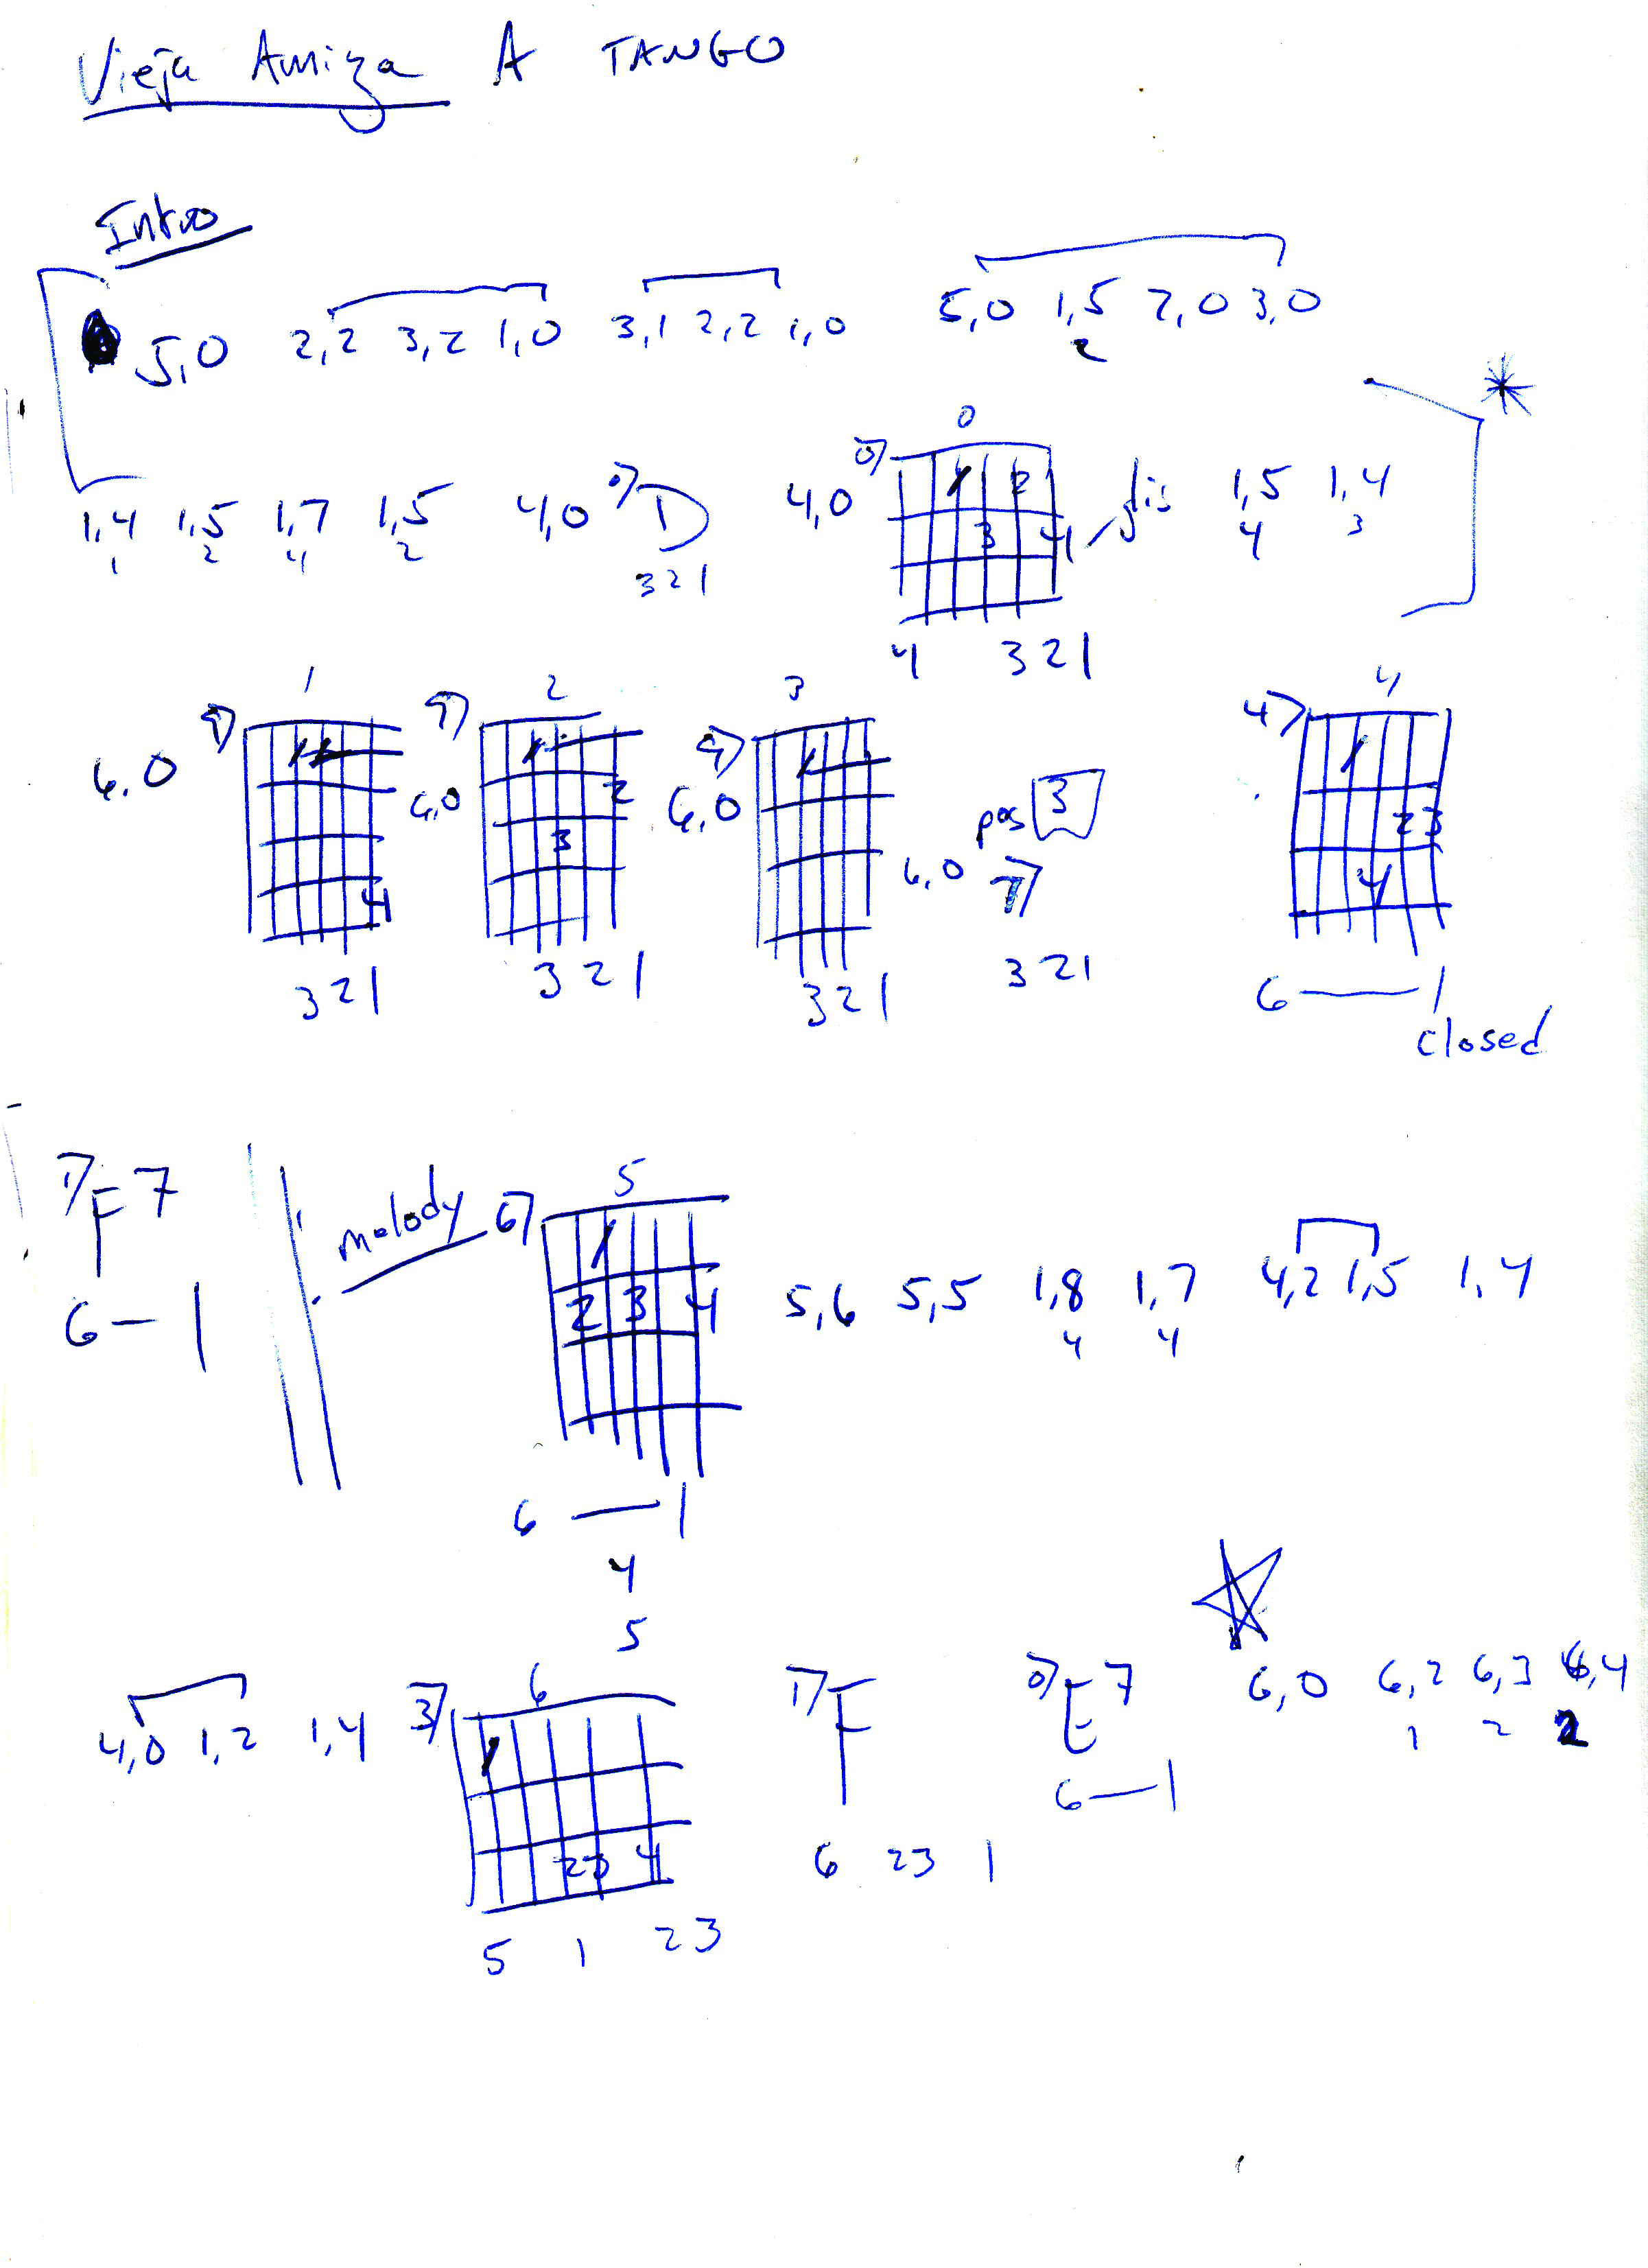 Vieja Amiga A TANGO
Intro
5,0 2,2 3,2 1,0 3,1 2,2 1,0 5,0 1,5 2,0 3,0
2
0
1,4 1,5 1,7 1,5 4,0 0) D 4,0 0) 1 2 1,5 1,4
1 2 4 2 3 4 4 3
3 2 1
4 3 2 1
1 2 3 4
6,0 9) 7) 9) 4)
6,0 2 6,0 pos 3 2 3
3 6,0 7) 4
4
3 2 1 3 2 1 3 2 1 3 2 1 6 — 1
closed
1) F7 melody 6) 5
6 — 1 2 3 4 5,6 5,5 1,8 1,7 4,2 1,5 1,4
4 4
6 — 1
4
5
4,0 1,2 1,4 3) 6 1) F 0) E7 6,0 6,2 6,3 6,4
1 2 2
6 — 1
2 3 4 6 23 1
5 1 2 3